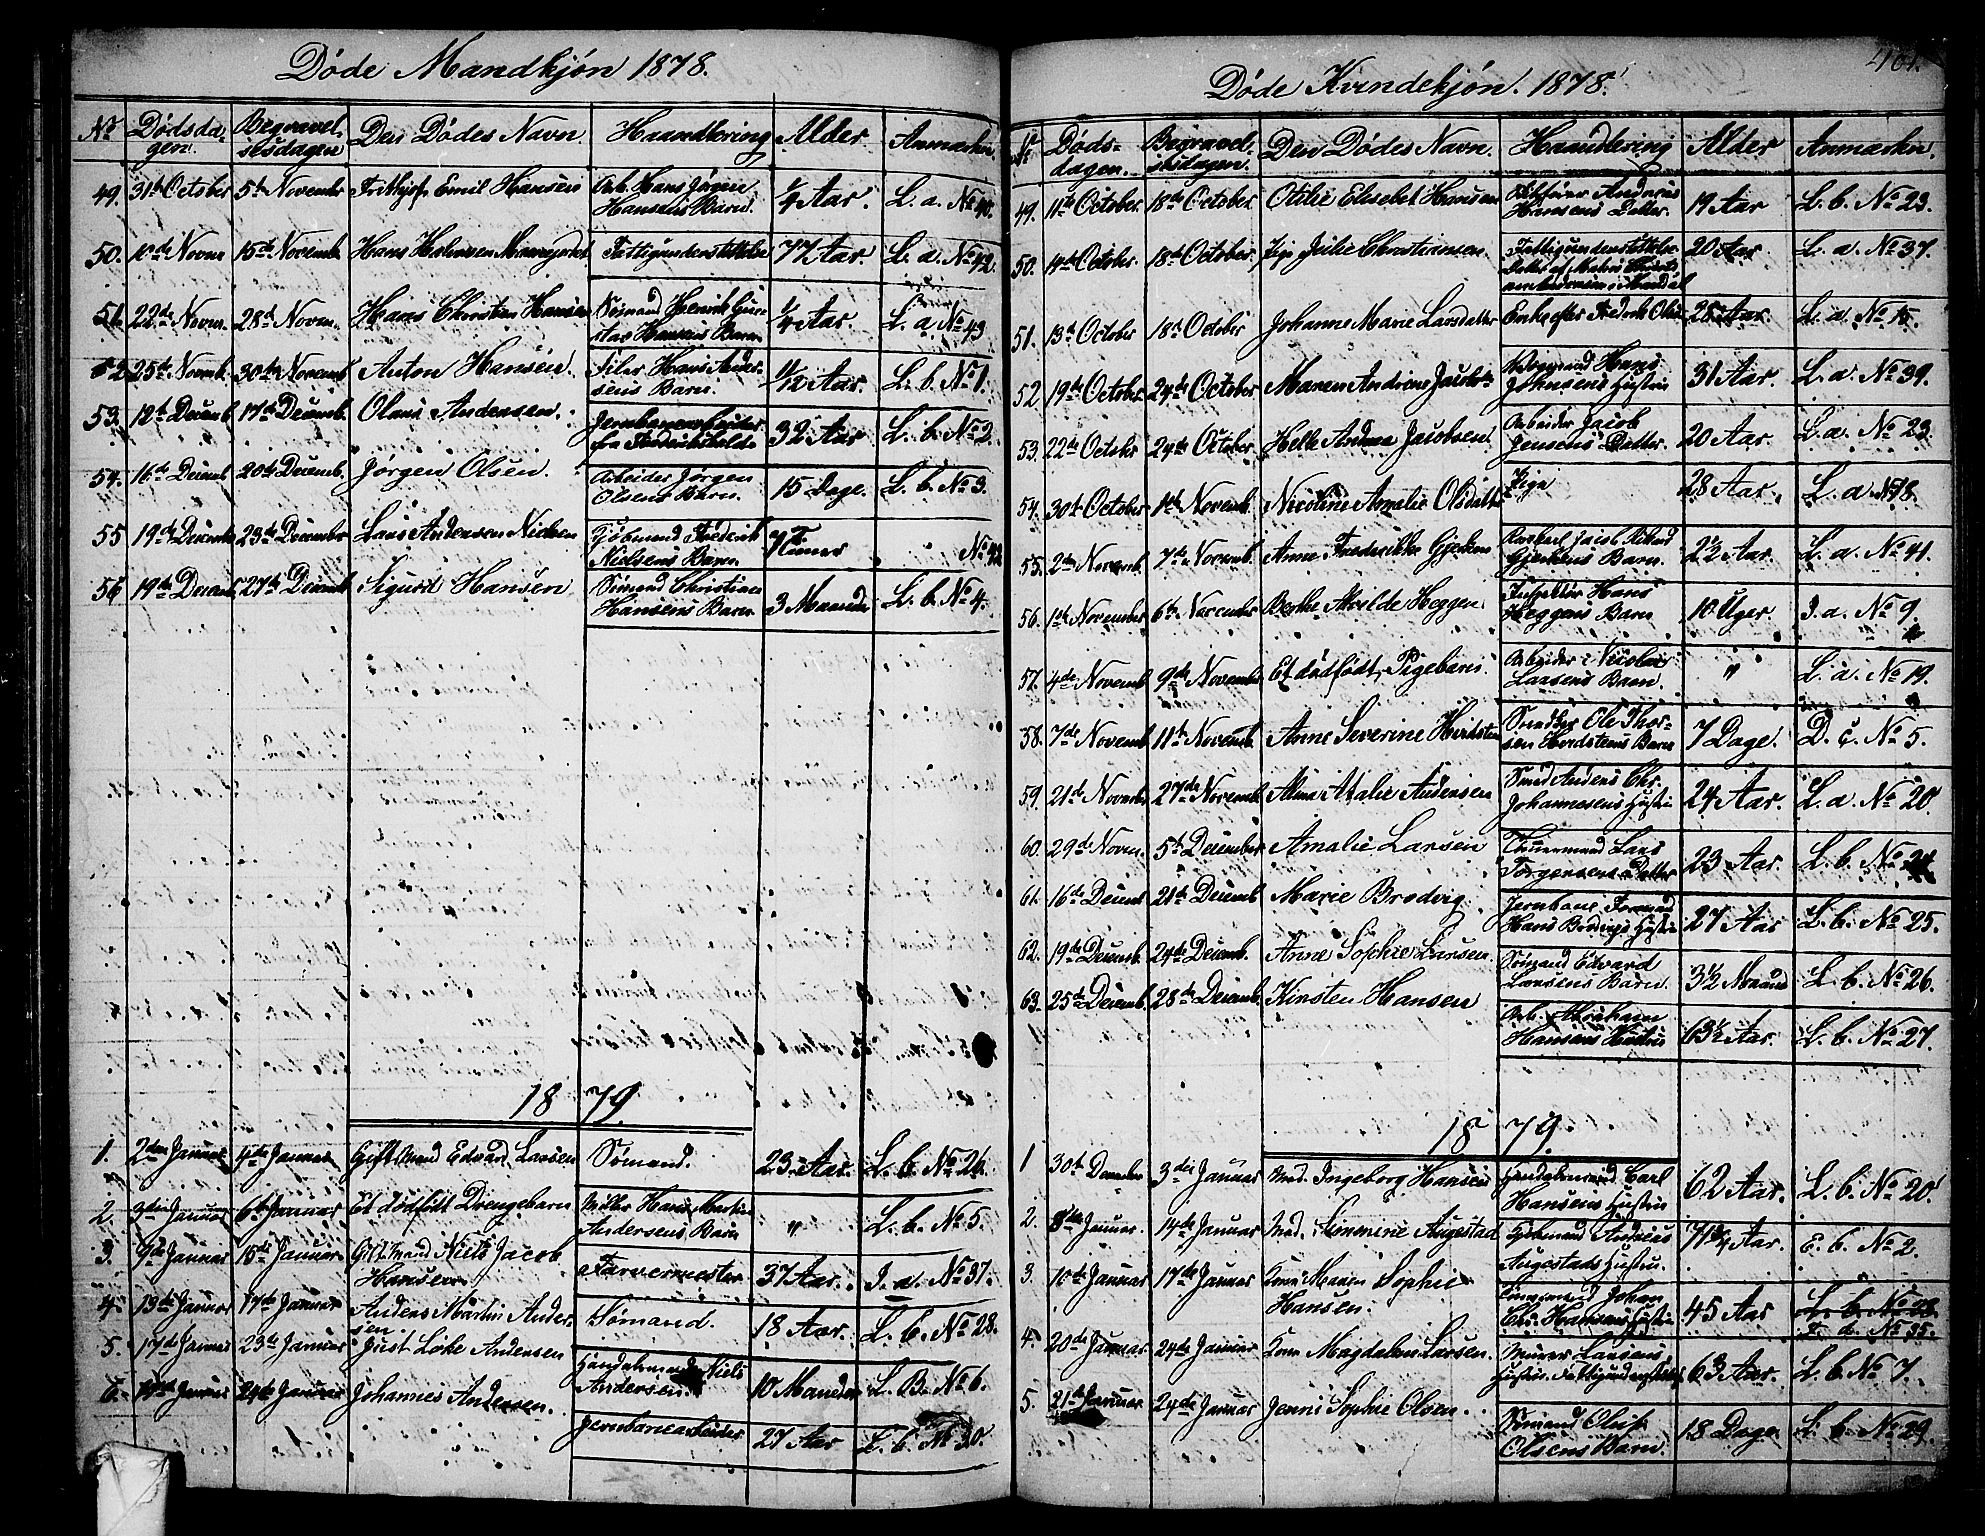 Døde Mandkjøn 1878.
No Dødsdagen. Begravelsesdagen Den Dødes Navn. Haandtering Alder Anmærkn.
49. 31te October 5te November Frithjof Emil Hansen Arb. Hans Jørgen Hansens Barn. 1/4 Aar. L. a. No 40.
50. 10de Novem 15de Novemb. Hans Fattigunderstöttelse 77 Aar. L. a. No 42.
51. 22de Novem. 28de Novem. Hans Christian Hansen Sömand Henrik Gustav Hansens Barn 1/4 Aar. L. a. No 43
52 25de Novemb. 30te Novemb Anton Hansen. Filer Hans Andersens Barn. 11/12 Aar. L. b. No 1.
53. 12te Decemb. 17de Decemb. Olaus Andersen. Jernbanearbeider fra Fredrikshald 32 Aar L. b. No 2
54. 16de Decemb 20de Decemb. Jørgen Olsen. Arbeider Jørgen Olsens Barn. 15 Dage. L. b. No 3.
55 19de December 23de December Lars Andersen Nielsen Gjöbmand Fredrik Nielsens Barn 7 Timer No 42
56 19de Decemb. 27de Decemb Sigurd Hansen Sömand Christian Hansens Barn 3 Maaneder L. b. No 4.
1879.
1. 2den Januar 4de Januar Gift Mand Edvard Larsen Sömand. 23 Aar. L. b. No 26.
2. 3die Januar 6te Januar Et dödfödt Drengebarn Möller Hans Martin Andersens Barn " L. b. No 5.
3. 9de Januar 15de Januar Gift Mand Niels Jacob Hansen Farvermester 37 Aar. J. a. No 37.
4. 13de Januar 17de Januar Anders Martin Andersen Sömand. 18 Aar. L. b. No 28.
5. 17de Januar 23de Januar Just Loke Andersen Handelsmand Niels Andersen 10 Maaneder L. B. No 6.
6. 19de Januar 24de Januar Johannes Andersen. Jernbanearbeider 27 Aar L. b. No 30.
461.
Døde Kvindekjøn. 1878.
No Dødsdagen. Begravelsesdagen. Den Dødes Navn. Haandtering Alder Anmærkn.
49. 11te October. 18de October. Otilie Elisebet Hansen Andreas Hansens Datter. 19 Aar L. b. No 23.
50. 14de October. 18de October. Pige Julie Christiansen Fattigunderstöttelse Datter af 20 Aar L. a. No 37.
51. 13de October 18de October Johanne Marie Larsdatter Enke efter Fredrik Olsen 28 Aar. L. a. No 15.
52 19de October. 24de October Maren Andrine Jacobs Hans Johnsens Hustru 31 Aar. L. a. No 39.
53. 22de October 24de October Helle Andrea Jacobsen Arbeider Jacob Jensens Datter. 20 Aar. L. a. No 23
54. 30te October 4de Novemb. Nicoline Amalie Olsdatter Pige 28 Aar. L. a No 18.
55. 2den Novemb. 7de Novemb. Anne Fredrikke Gjerløws Jacob Gjerløws Barn. 2 1/2 Aar. L. a. No 41.
56. 1ste November 6te November Berthe Alvilde Heggen. Inspektör Hans Heggens Barn 10 Uger. J. a. No 9.
57. 4de Novemb 9de Novemb Et dödfödt Pigebarn Arbeider Nicolai Larsens Barn. " L. a. No 19.
58. 7de Novemb 11te Novemb. Anne Severine Hvidsten Ole Thorsen Hvidstens Barn 7 Dage. D. c. No 5.
59. 21de Novemb 27de Novemb Alma Atalie Andersen Smed Anders Chr. Johannesens Hustru 24 Aar. L. a. No 20
60. 29de Novem. 5te December Amalie Larsen Lars Torgersens Datter 23 Aar. L. b. No 24
61. 16de Decemb 21de Decemb Marie Brodvig. Jernbane Formand Hans Brodvigs Hustru 27 Aar L. b. No 25.
62. 19de Decemb. 24de Decemb. Anne Sophie Larsen. Sömand Edvard Larsens Barn. 3 1/2 Maaned L. b. No 26.
63. 25de Decemb. 28de Decemb. Kirsten Hansen Arb. Abraham Hansens Hustru 63 1/2 Aar. L. b. No 27.
1879.
1 30te December 3die Januar Mad. Ingeborg Hansen Handelsmand Carl Hansens Hustru 62 Aar. L. b. No 20.
2. 8de Januar. 14de Januar Mad. Simmine Augestad Gjöbmand Andreas Augestads Hustru. 71 3/4 Aar. E. b. No 2.
3. 10de Januar 17de Januar Kone Maren Sophie Hansen. Tømmermand Johan Chr. Hansens Hustru 45 Aar F. d. No 35.
4. 20de Januar 24de Januar Kone Magdalene Larsen. Murer Larsens Hustru. Fattigunderstöttelse 63 Aar. L. b. No 7.
5. 21de Januar 24de Januar Jenni Sophie Olsen. Sömand Oluf Olsens Barn. 18 Dage L. b. No 29.